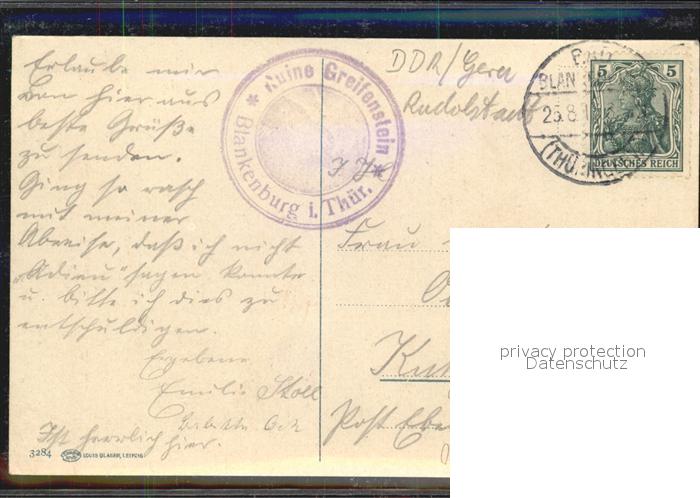 Erlaube mir
von hier aus
beste Grüße
zu senden.
Ging so rasch
mit meiner
Abreise, daß ich nicht
"Adieu" sagen konnte
u. bitte ich dies zu
entschuldigen.
Ergebene
Emilie Stoll
Ist herrlich hier.
3284 LOUIS GLASER, LEIPZIG
* Ruine Greifenstein *
Blankenburg i. Thür.
DDR/Gera
Rudolstadt
BAD
BLAN
25.8.1
(THÜRING
5 5
DEUTSCHES REICH
Frau
Post Ebe
privacy protection
Datenschutz